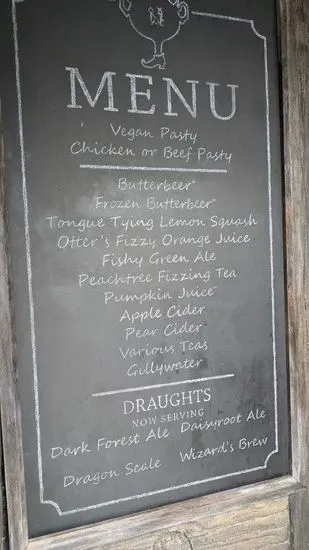 MENU
Vegan Pasty
Chicken or Beef Pasty
Butterbeer™
Frozen Butterbeer™
Tongue Tying Lemon Squash
Otter's Fizzy Orange Juice
Fishy Green Ale
Peachtree Fizzing Tea
Pumpkin Juice™
Apple Cider
Pear Cider
Various Teas
Gillywater
DRAUGHTS
NOW SERVING
Dark Forest Ale Daisyroot Ale
Dragon Scale Wizard's Brew